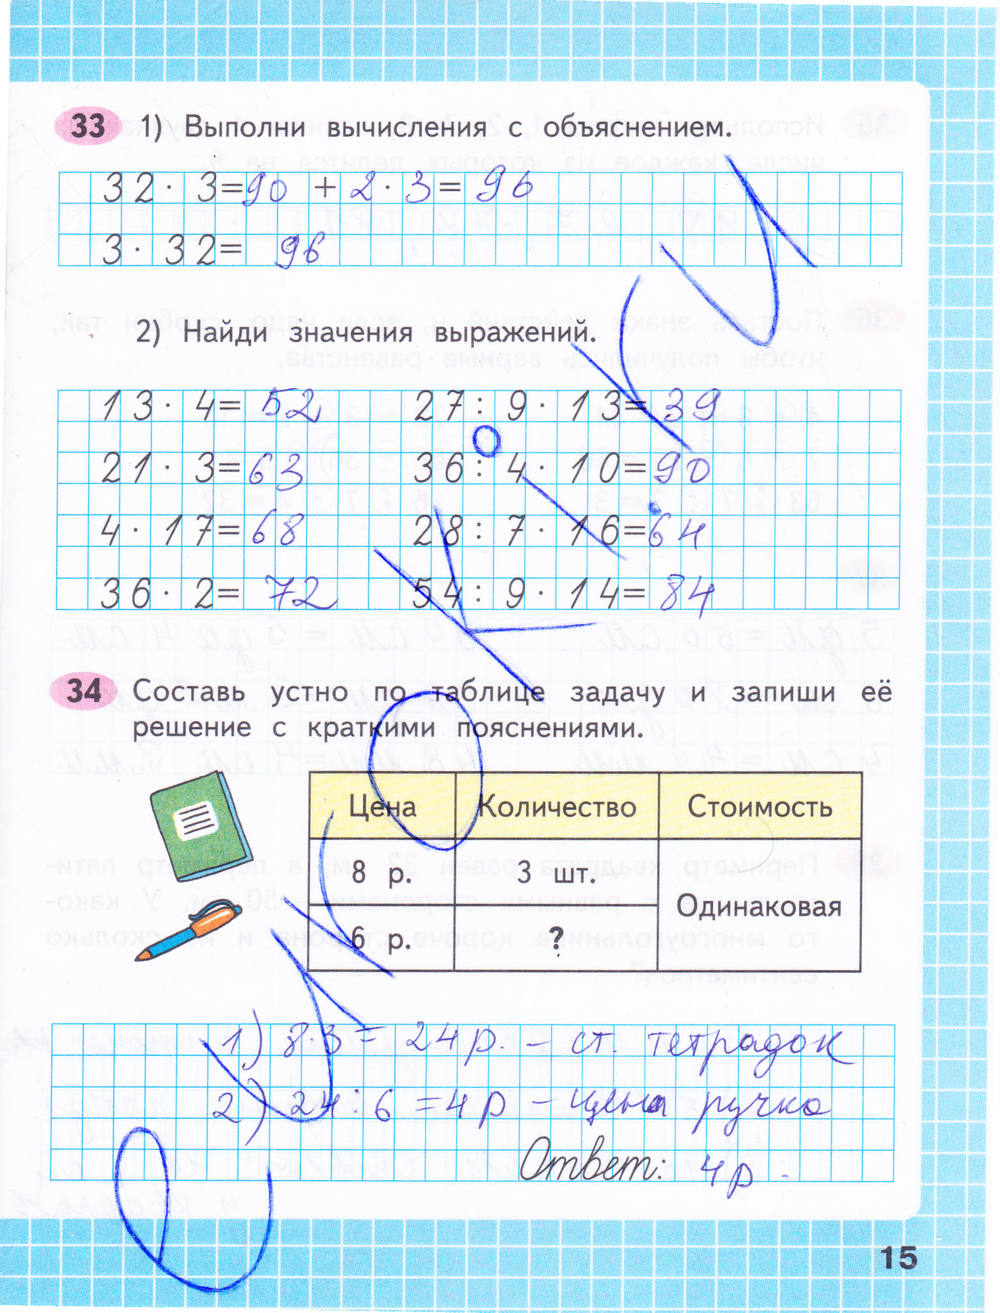 33 1) Выполни вычисления с объяснением.
32· 3=90 + 2· 3= 96
3· 32= 96
2) Найди значения выражений.
13· 4= 52 27: 9· 13= 39
21· 3= 63 36: 4· 10= 90
4· 17= 68 28: 7· 16= 64
36· 2= 72 54: 9· 14= 84
34 Составь устно по таблице задачу и запиши её
решение с краткими пояснениями.
Цена Количество Стоимость
8 р. 3 шт.
Одинаковая
6 р. ?
1) 8·3= 24 р. - ст. тетрадок
2) 24:6 =4 р - цена ручка
Ответ: 4 р.
15